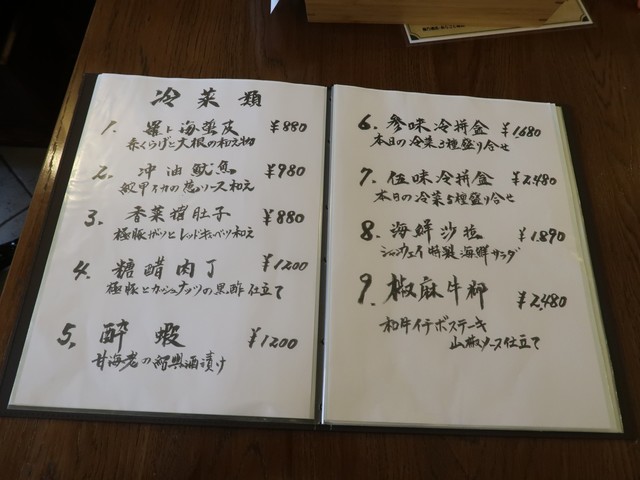 冷菜類
1. 羅卜海蜇皮 ¥880
赤くらげと大根の和え物
2. 冲油魷魚 ¥980
紋甲イカの葱ソース和え
3. 香菜拌肚子 ¥880
極豚ガツとレッドキャベツ和え
4. 糖醋肉丁 ¥1200
極豚とカシューナッツの黒酢仕立て
5. 酔蝦 ¥1200
甘海老の紹興酒漬け
6. 参味冷拼盆 ¥1,680
本日の冷菜3種盛り合せ
7. 伍味冷拼盆 ¥2,480
本日の冷菜5種盛り合せ
8. 海鮮沙拉 ¥1,890
シャンウェイ特製海鮮サラダ
9. 椒麻牛柳 ¥2,480
和牛イチボステーキ
山椒ソース仕立て